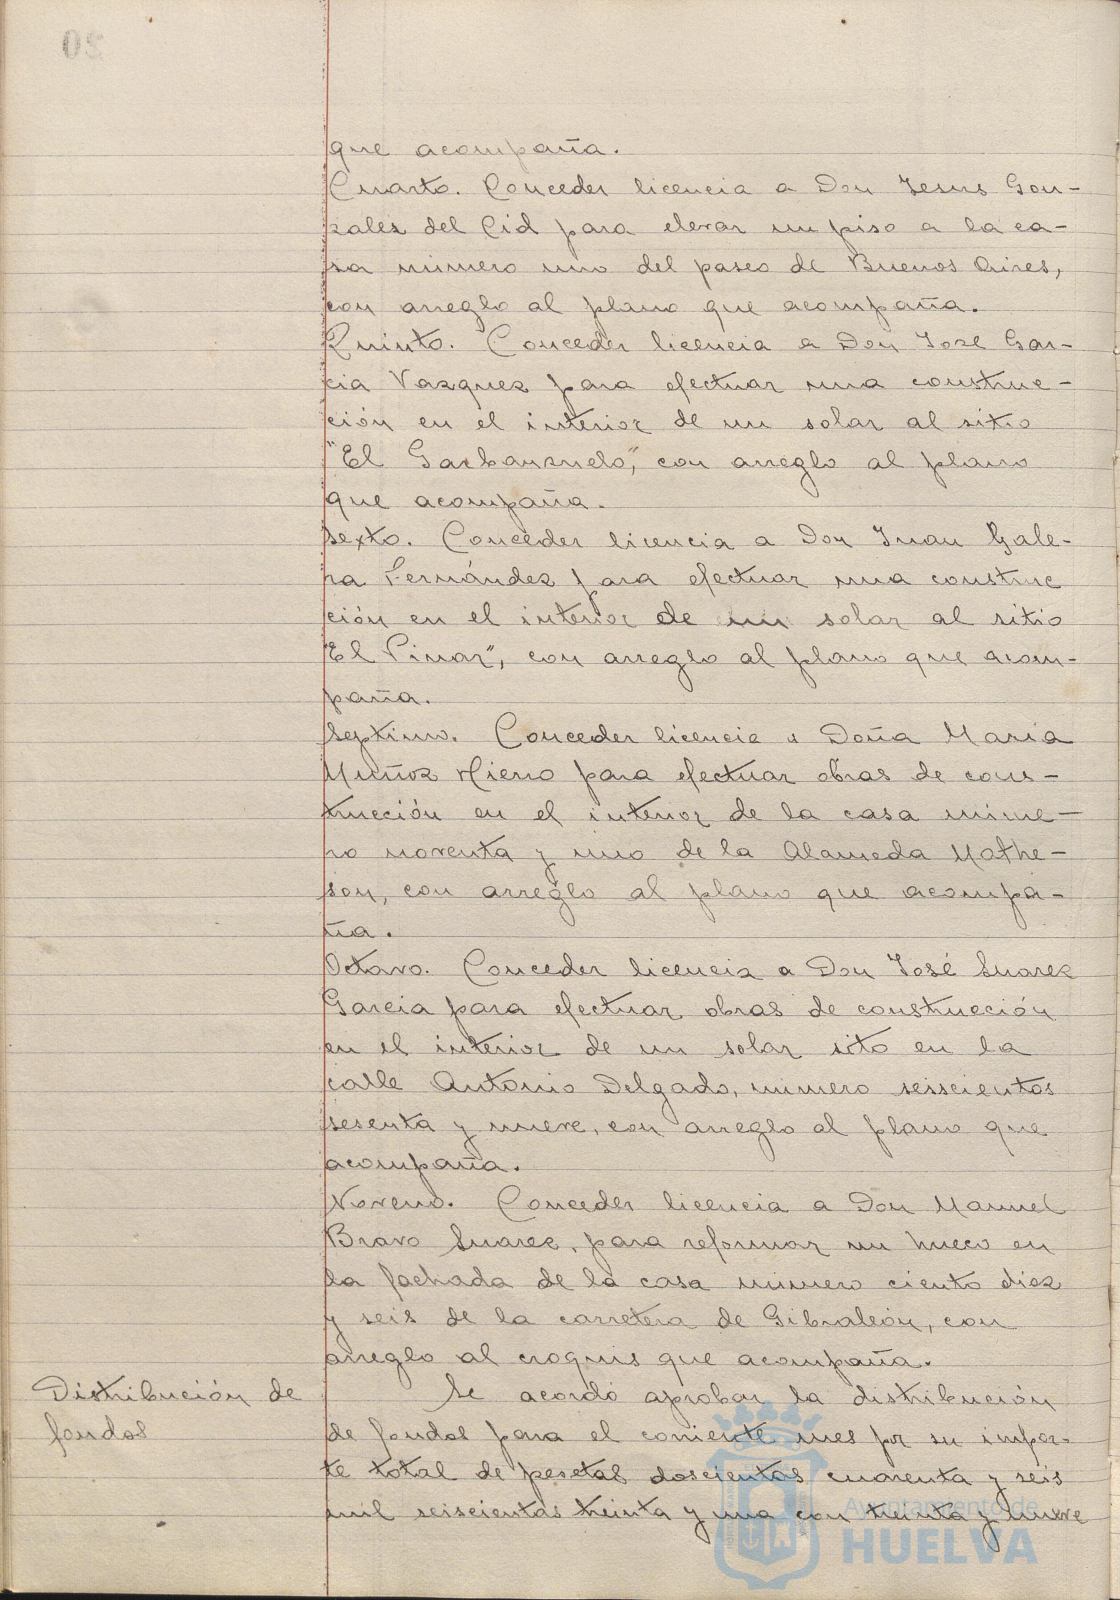 que acompaña.
Cuarto. Conceder licencia a Don Jesus Gon-
zalez del Cid para elevar un piso a la ca-
sa número uno del paseo de Buenos Aires,
con arreglo al plano que acompaña.
Quinto. Conceder licencia a Don José Gar-
cia Vazquez para efectuar una construc-
ción en el interior de un solar al sitio
"El Garbanzuelo", con arreglo al plano
que acompaña.
Sexto. Conceder licencia a Don Juan Gale-
ra Fernández para efectuar una construc
ción en el interior de un solar al sitio
"El Pinar", con arreglo al plano que acom-
paña.
Septimo. Conceder licencia a Doña María
Muñoz Hierro para efectuar obras de cons-
trucción en el interior de la casa núme-
ro noventa y uno de la Alameda Mathe-
son, con arreglo al plano que acompa-
ña.
Octavo. Conceder licencia a Don José Suarez
Garcia para efectuar obras de construcción
en el interior de un solar sito en la
calle Antonio Delgado, número seiscientos
sesenta y nueve, con arreglo al plano que
acompaña.
Noveno. Conceder licencia a Don Manuel
Bravo Suarez, para reformar un hueco en
la fachada de la casa número ciento diez
y seis de la carretera de Gibraleón, con
arreglo al croquis que acompaña.
Distribución de
fondos
Se acordó aprobar la distribución
de fondos para el corriente mes por su impor-
te total de pesetas doscientas cuarenta y seis
mil seiscientas treinta y una con treinta y nueve
Ayuntamiento de
HUELVA